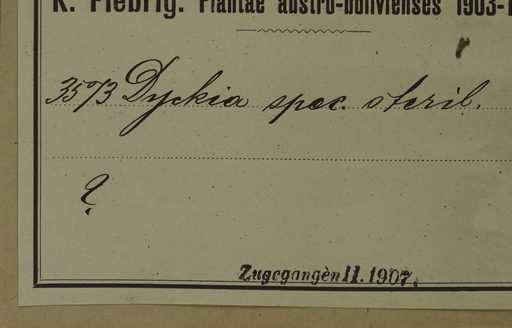 K. Fiebrig. Plantae austro-bolivienses 1903-
3573 Dyckia spec. steril.
?
Zugegangen II. 1907.